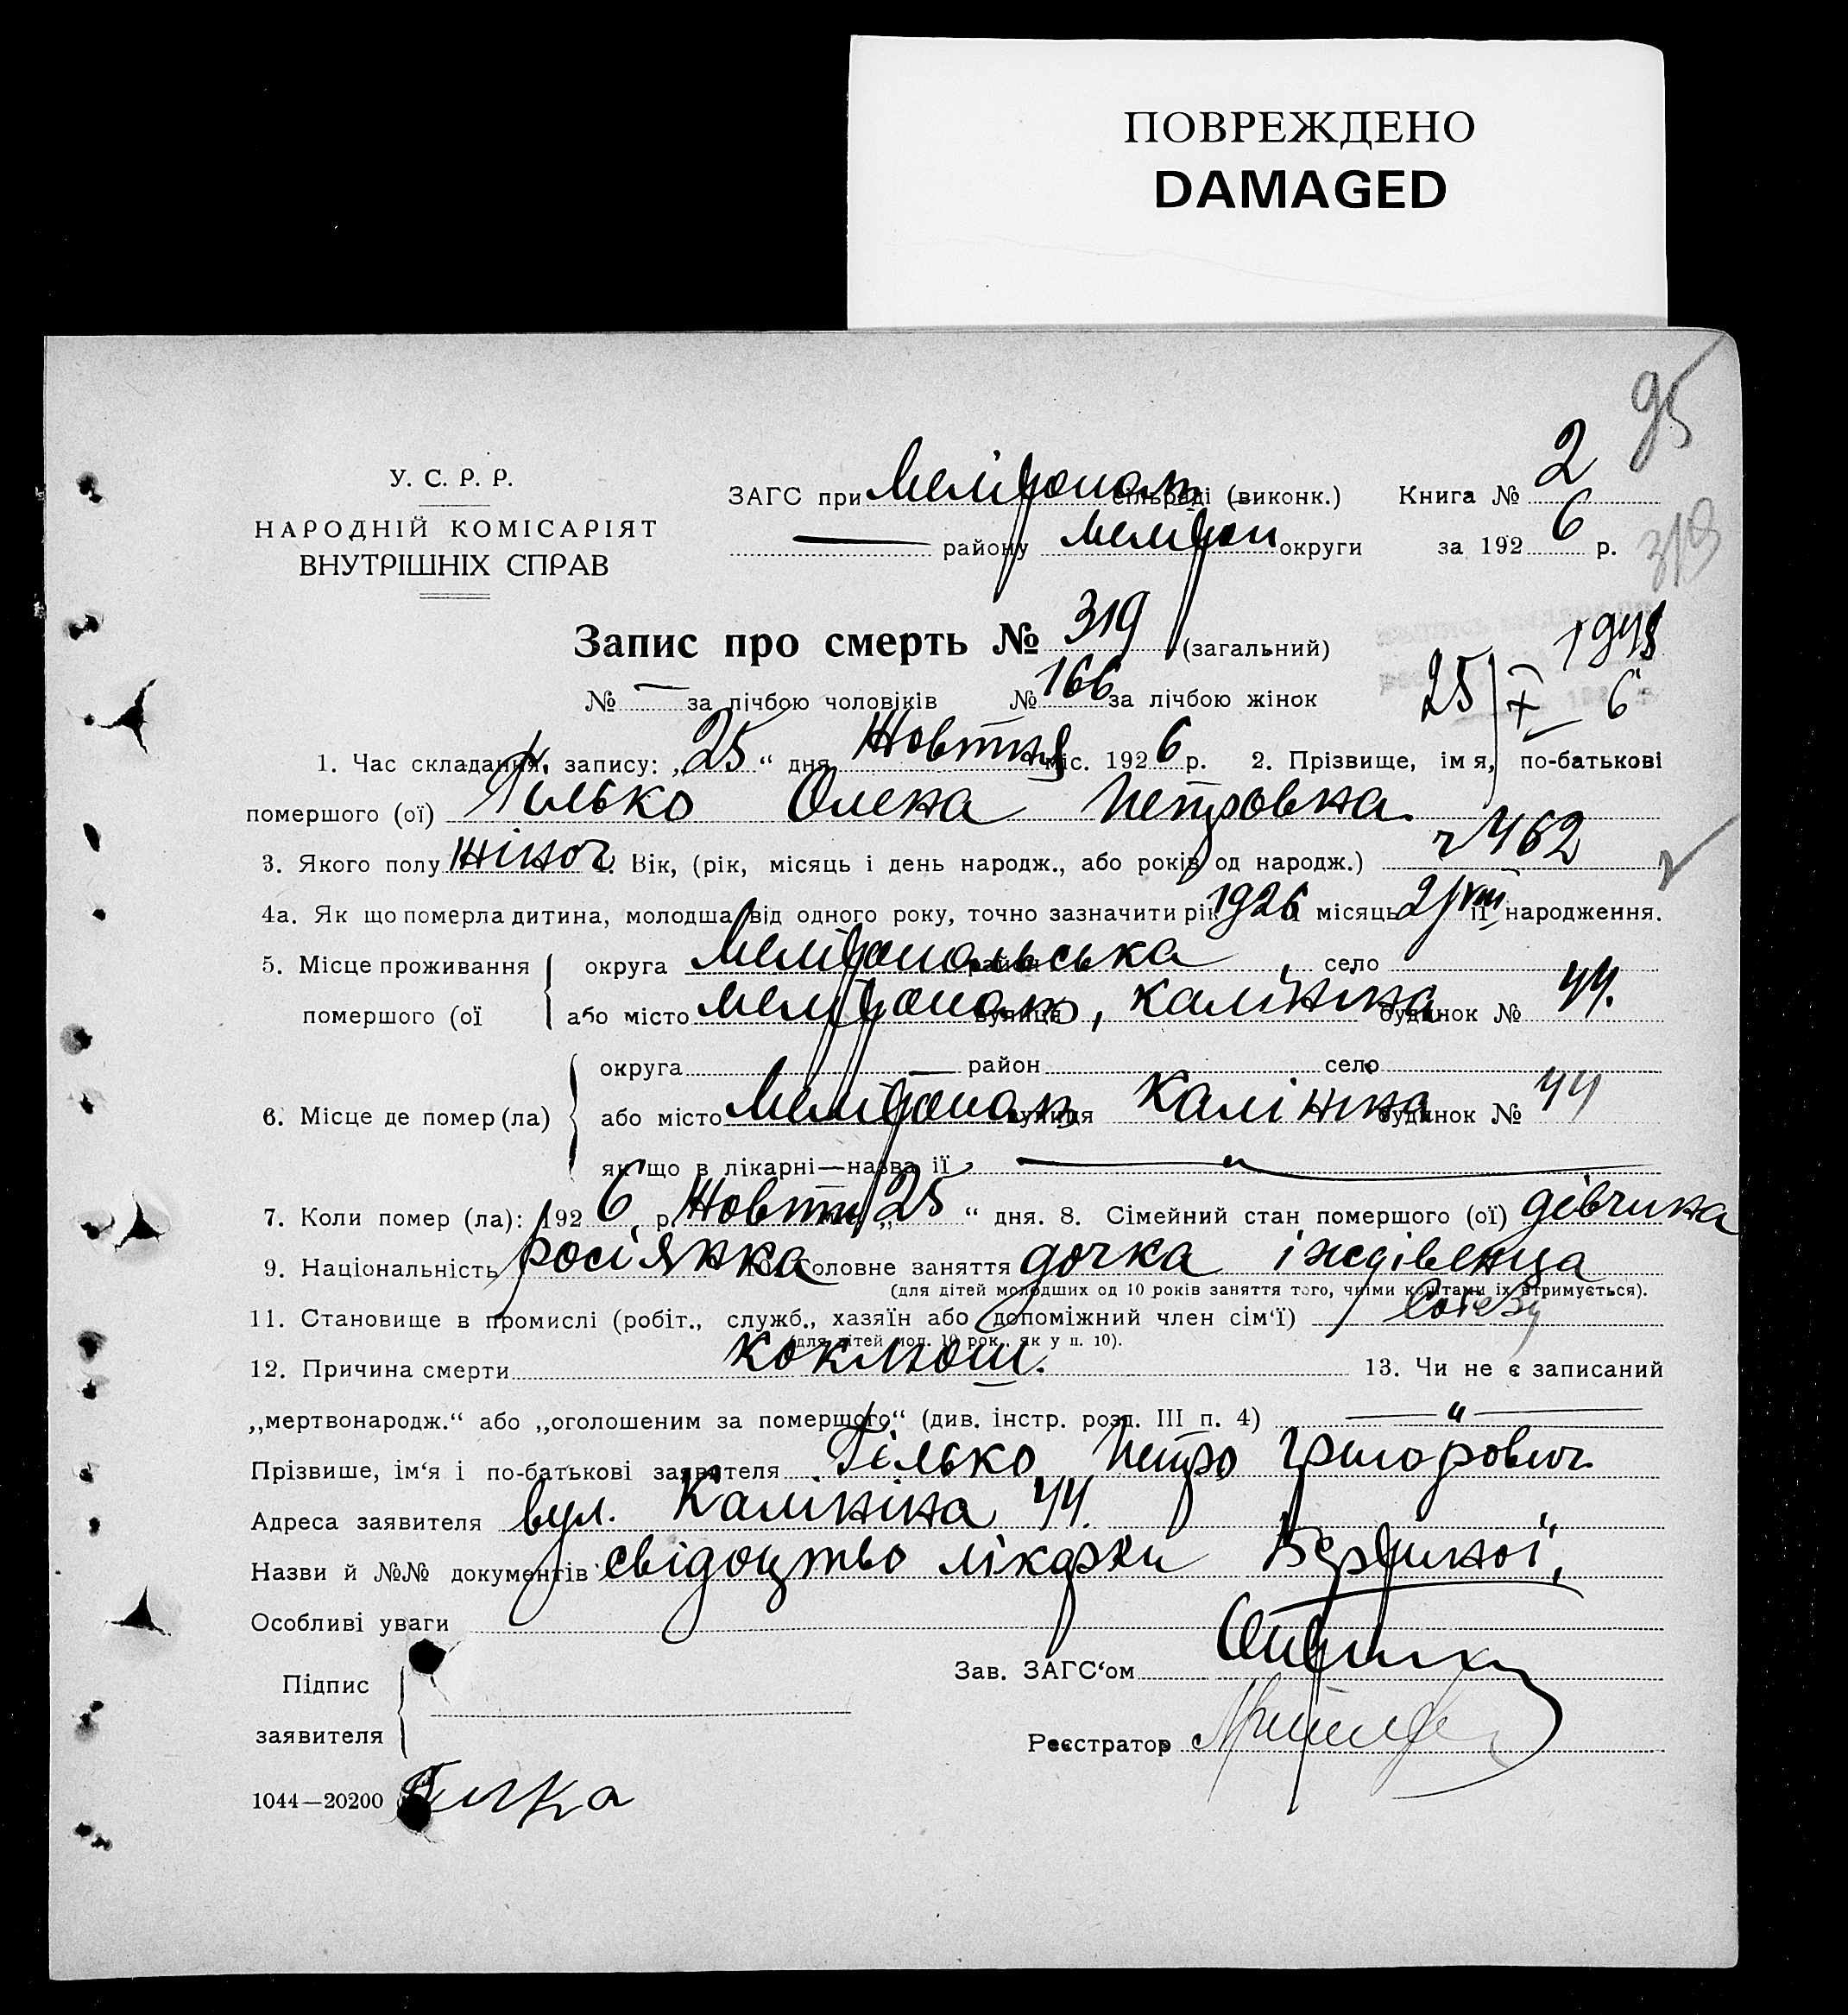 ПОВРЕЖДЕНО
DAMAGED
95
У. С. Р. Р.
НАРОДНІЙ КОМІСАРІЯТ
ВНУТРІШНІХ СПРАВ
ЗАГС при Мелітополь сільраді (виконк.) Книга № 2
— району Мелітоп округи за 192 6 р.
319
Запис про смерть № 319 (загальний)
№ — за лічбою чоловіків № 166 за лічбою жінок
25/X 6
1. Час складання запису: „ 25 “ дня Жовтня міс. 192 6 р. 2. Прізвище, імя, по-батькові
помершого (ої) Гилько Олена Петровна.
3. Якого полу жіноч. Вік, (рік, місяць і день народж., або років од народж.) 462
4а. Як що померла дитина, молодша від одного року, точно зазначити рік 1926 місяць 2/VIII її народження.
5. Місце проживання помершого (ої округа Мелітопольська район село
або місто Мелітополь, вулиця Калініна будинок № 44.
6. Місце де помер (ла) округа — район село
або місто Мелітополь вулиця Калініна будинок № 44
як що в лікарні—назва її — „ —
7. Коли помер (ла): 192 6 р. Жовтня міс. „ 25 “ дня. 8. Сімейний стан помершого (ої) дівчина
9. Національність росіянка 10. Головне заняття дочка іждівенца
(для дітей молодших од 10 років заняття того, чиїми коштами їх втримується).
11. Становище в промислі (робіт., служб., хазяїн або допоміжний член сім‘ї)
(для дітей мол. 10 рок., як у п. 10).
12. Причина смерти коклюш. 13. Чи не є записаний
„мертвонародж.“ або „оголошеним за помершого“ (див. інстр. розд. III п. 4) — „ —
Прізвище, ім‘я і по-батькові заявителя Гілько Петро Григорович
Адреса заявителя вул. Калініна 44.
Назви й №№ документів свідоцтво лікарки
Особливі уваги
Зав. ЗАГС‘ом
Підпис
заявителя
Реєстратор
1044—20200